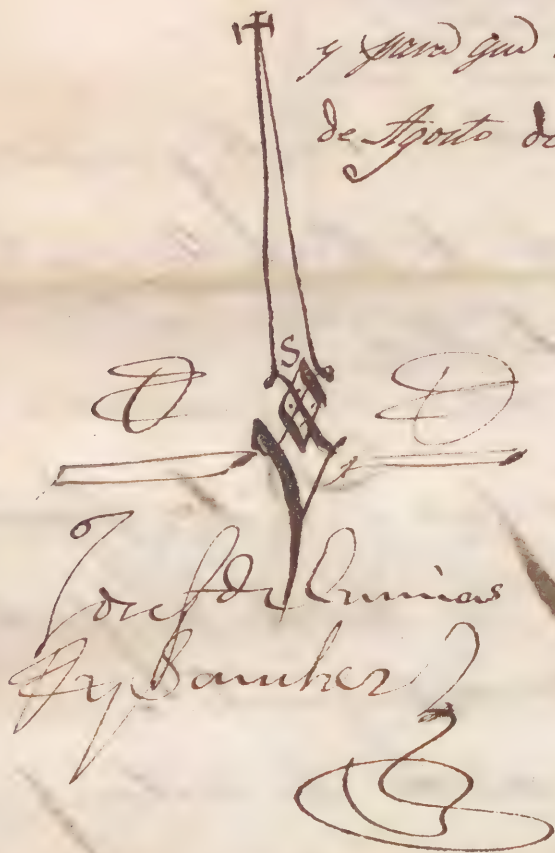 y para que
de Agosto de
S
Josef de
Sanchez